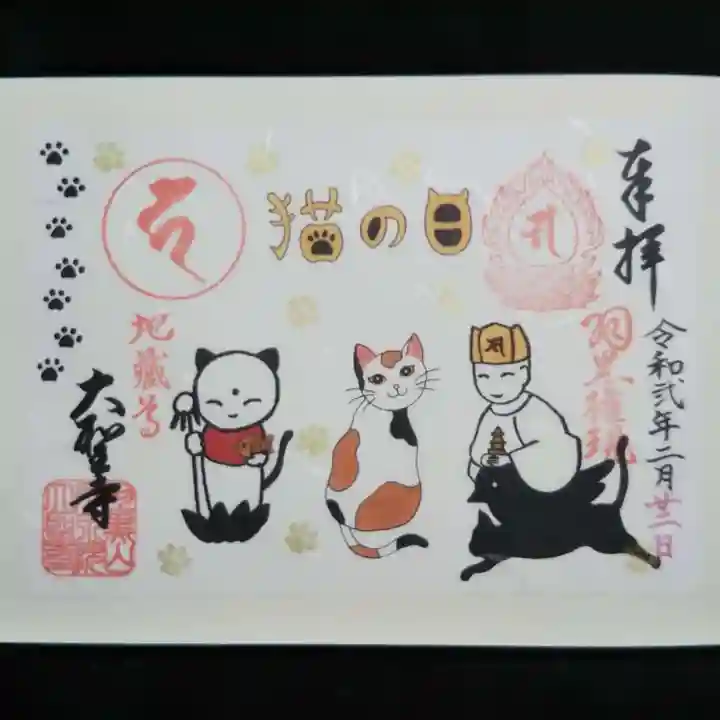 奉拝
令和弐年二月廿二日
羽黒権現
猫の日
地蔵尊
大聖寺